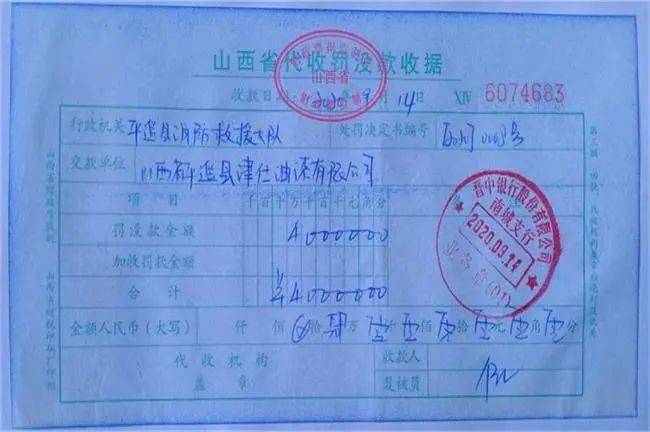 山西省代收罚没款收据
收款日期 2020年9月14日 XIV 6074683
行政机关 平遥县消防救援大队 处罚决定书编号
交款单位 山西省平遥县津仕油漆有限公司
项目 千百十万千百十元角分
罚没款金额 4000000
加收罚款金额
合计 ¥4000000
金额人民币(大写) 仟 佰 拾 肆 万 仟 佰 拾 元 角 分
代收机构 收款人
盖章 复核员
山西省
晋中银行股份有限公司
南城支行
2020.09.14
业务章(01)